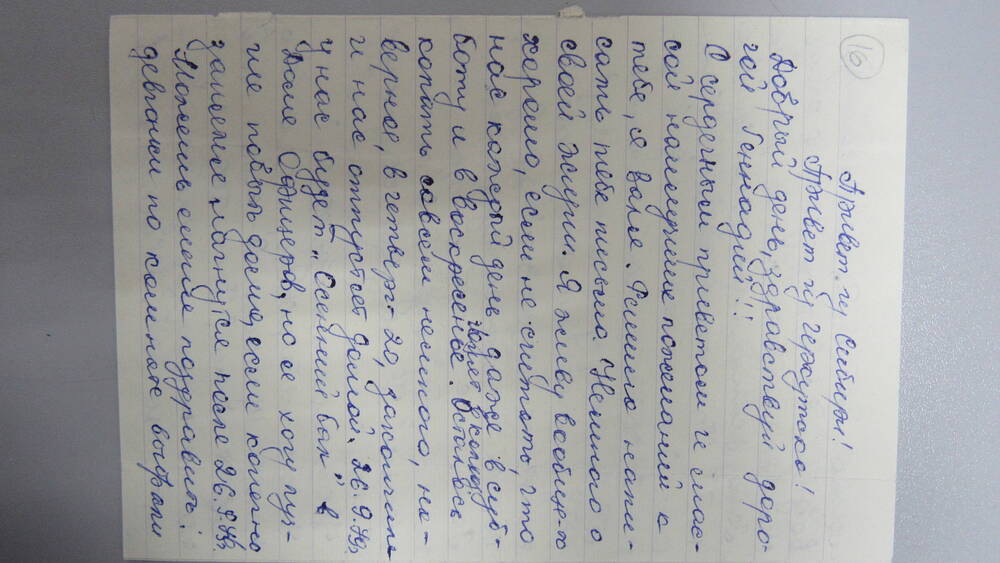 16
Привет из Сибири!
Привет из Иркутска!
Добрый день, здравствуй доро-
гой Геннадий!!
С сердечным приветом и мас-
сой наилучших пожеланий к
тебе, я Валя. Решила напи-
сать тебе письмо. Немного о
своей жизни. Я живу вообще-то
хорошо, если не считать, что
нас каждый день, даже в суб-
боту и в воскресенье. Осталось
гонят в колхоз
копать совсем немного, на-
верное, в четверг - 20, закончим
и нас отпустят домой. 26.9.79г.
у нас будет „Осенний бал" в
Доме Офицеров, но я хочу луч-
ше побыть дома, если конечно,
занятия начнутся после 26.9.79г.
Можешь меня поздравить:
девчонки по комнате выбрали